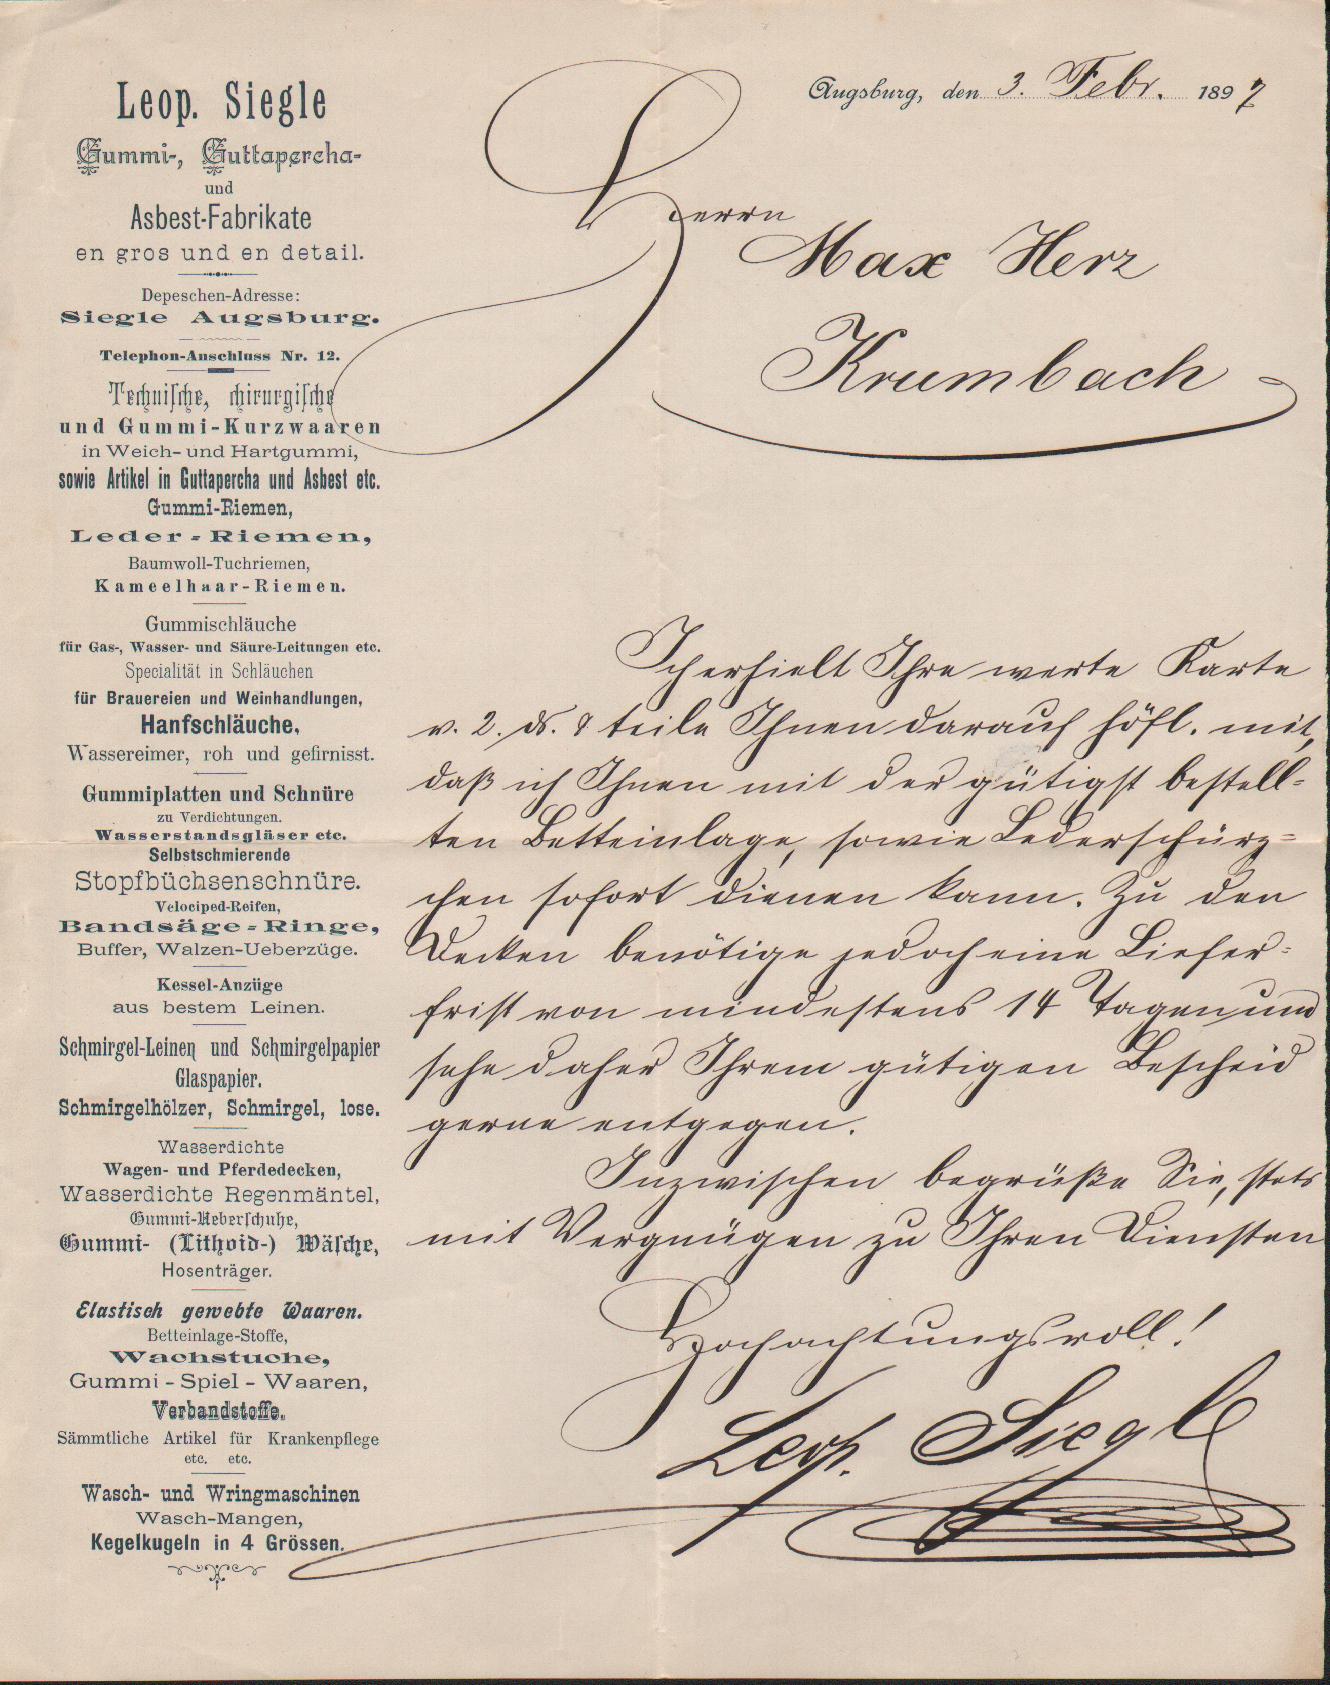 Leop. Siegle
Gummi-, Guttapercha-
und
Asbest-Fabrikate
en gros und en detail.
Depeschen-Adresse:
Siegle Augsburg.
Telephon-Anschluss Nr. 12.
Technische, chirurgische
und Gummi-Kurzwaaren
in Weich- und Hartgummi,
sowie Artikel in Guttapercha und Asbest etc.
Gummi-Riemen,
Leder-Riemen,
Baumwoll-Tuchriemen,
Kameelhaar-Riemen.
Gummischläuche
für Gas-, Wasser- und Säure-Leitungen etc.
Specialität in Schläuchen
für Brauereien und Weinhandlungen,
Hanfschläuche,
Wassereimer, roh und gefirnisst.
Gummiplatten und Schnüre
zu Verdichtungen.
Wasserstandsgläser etc.
Selbstschmierende
Stopfbüchsenschnüre.
Velociped-Reifen,
Bandsäge-Ringe,
Buffer, Walzen-Ueberzüge.
Kessel-Anzüge
aus bestem Leinen.
Schmirgel-Leinen und Schmirgelpapier
Glaspapier.
Schmirgelhölzer, Schmirgel, lose.
Wasserdichte
Wagen- und Pferdedecken,
Wasserdichte Regenmäntel,
Gummi-Ueberschuhe,
Gummi- (Lithoid-) Wäsche,
Hosenträger.
Elastisch gewebte Waaren.
Betteinlage-Stoffe,
Wachstuche,
Gummi-Spiel-Waaren,
Verbandstoffe.
Sämmtliche Artikel für Krankenpflege
etc. etc.
Wasch- und Wringmaschinen
Wasch-Mangen,
Kegelkugeln in 4 Grössen.
Augsburg, den 3. Febr. 1897
Herrn
Max Herz
Krumbach
Ich erhielt Ihre werte Karte
v. 2. ds. & teile Ihnen darauf höfl. mit,
daß ich Ihnen mit der gütigst bestell-
ten Betteinlage, sowie Lederschürz-
chen sofort dienen kann. Zu den
Decken benötige jedoch eine Liefer-
frist von mindestens 14 Tagen und
sehe daher Ihrem gütigen Bescheid
gerne entgegen.
Inzwischen begrüße Sie, stets
mit Vergnügen zu Ihren Diensten
Hochachtungsvoll!
Leop. Siegle